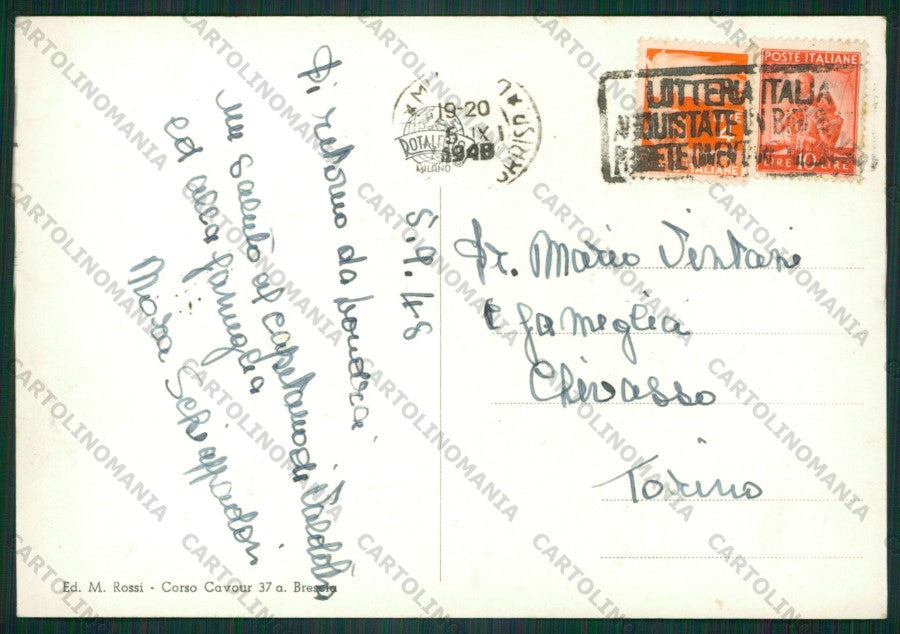 5.9.48
Di ritorno da Londra
un saluto al capitano di
ed alla famiglia
Mora
Dr. Mario
e famiglia
Chivasso
Torino
19-20
5 IX
1948
TOTAL
MILANO
LOTTERIA ITALIA
POSTE ITALIANE
LIRE 10 LIRE
4
ITALIANE
Ed. M. Rossi - Corso Cavour 37 a. Brescia
CARTOLINOMANIA